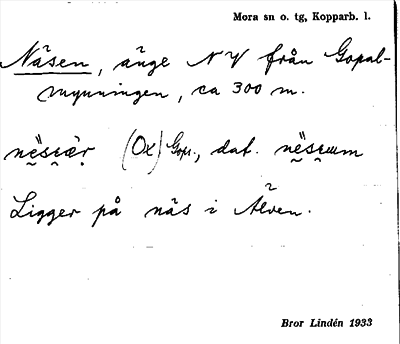 Mora sn o. tg, Kopparb. l.
Näsen, änge NV från Gopal-
mynningen, ca 300 m.
(Ox) Gopl., dat.
Ligger på näs i Älven.
Bror Lindén 1933